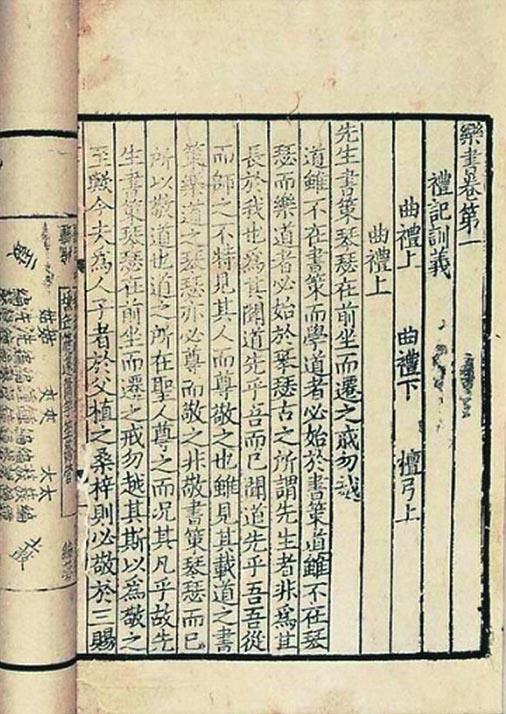 樂書卷第一
禮記訓義
曲禮上 曲禮下 檀弓上
曲禮上
先生書策琴瑟在前坐而遷之戒勿越
道雖不在書策而學道者必始於書策道雖不在琴
瑟而樂道者必始於琴瑟古之所謂先生者非爲其
長於我也爲其聞道先乎吾而已聞道先乎吾吾從
而師之不特見其人而尊敬之也雖見其載道之書
策樂道之琴瑟亦必尊而敬之非敬書策琴瑟而已
所以敬道也道之所在聖人尊之而况其凡乎故先
生書策琴瑟在前坐而遷之戒勿越其斯以爲敬之
至歟今夫爲人子者於父植之桑梓則必敬於三賜